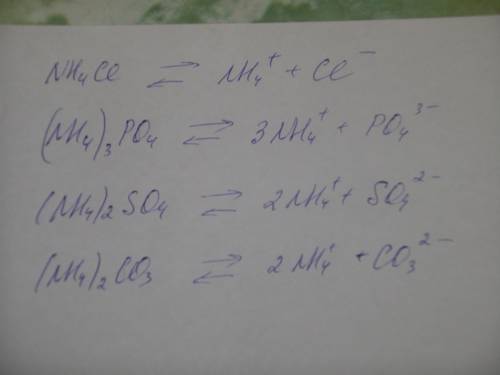 NH₄Cl ⇄ NH₄⁺ + Cl⁻
(NH₄)₃PO₄ ⇄ 3NH₄⁺ + PO₄³⁻
(NH₄)₂SO₄ ⇄ 2NH₄⁺ + SO₄²⁻
(NH₄)₂CO₃ ⇄ 2NH₄⁺ + CO₃²⁻